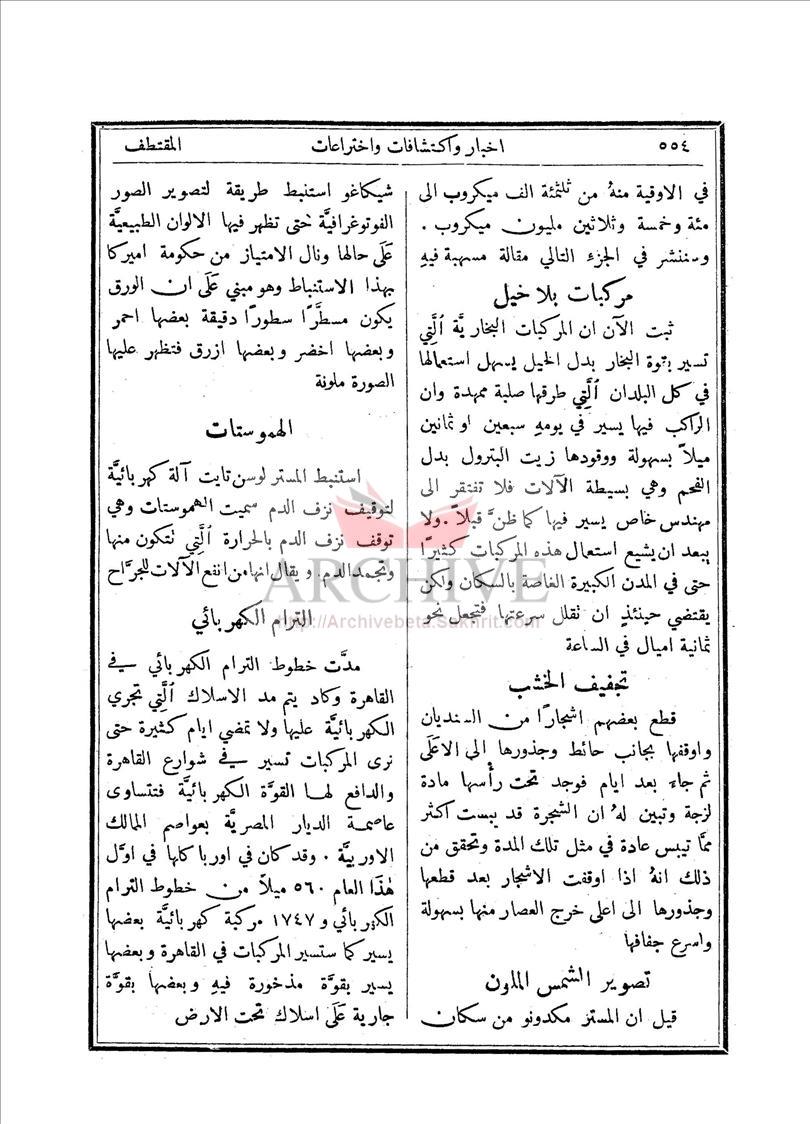 ٥٥٤
اخبار واكتشافات واختراعات
المقتطف
في الاوقية منهُ من ثلثمئة الف ميكروب الى
مئة وخمسة وثلاثين مليون ميكروب .
وسننشر في الجزء التالي مقالة مسهبة فيهِ
مركبات بلا خيل
ثبت الآن ان المركبات البخاريَّة الَّتي
تسير بقوة البخار بدل الخيل يسهل استعمالها
في كل البلدان الَّتي طرقها صلبة ممهدة وان
الراكب فيها يسير في يومهِ سبعين او ثمانين
ميلاً بسهولة ووقودها زيت البترول بدل
الفحم وهي بسيطة الآلات فلا تفتقر الى
مهندس خاص يسير فيها كما ظنَّ قبلاً . ولا
يبعد ان يشيع استعمال هذه المركبات كثيرًا
حتى في المدن الكبيرة الغاصة بالسكان ولكن
يقتضي حينئذٍ ان تقلل سرعتها فتجعل نحو
ثمانية اميال في الساعة
تجفيف الخشب
قطع بعضهم اشجارًا من السنديان
واوقفها بجانب حائط وجذورها الى الاعلَى
ثم جاء بعد ايام فوجد تحت رأسها مادة
لزجة وتبين لهُ ان الشجرة قد يبست اكثر
ممَّا تيبس عادة في مثل تلك المدة وتحقق من
ذلك انهُ اذا اوقفت الاشجار بعد قطعها
وجذورها الى اعلى خرج العصار منها بسهولة
واسرع جفافها
تصوير الشمس الملون
قيل ان المستر مكدونو من سكان
شيكاغو استنبط طريقة لتصوير الصور
الفوتوغرافيَّة حتى تظهر فيها الالوان الطبيعيَّة
عَلَى حالها ونال الامتياز من حكومة اميركا
بهذا الاستنباط وهو مبني عَلَى ان الورق
يكون مسطَّرًا سطورًا دقيقة بعضها احمر
وبعضها اخضر وبعضها ازرق فتظهر عليها
الصورة ملونة
الهموستات
استنبط المستر لوسن تايت آلة كهربائيَّة
لتوقيف نزف الدم سميت الهموستات وهي
توقف نزف الدم بالحرارة الَّتي تتكون منها
وتجمد الدم . ويقال انها من انفع الآلات للجرَّاح
الترام الكهربائي
مدَّت خطوط الترام الكهربائي في
القاهرة وكاد يتم مد الاسلاك الَّتي تجري
الكهربائيَّة عليها ولا تمضي ايام كثيرة حتى
نرى المركبات تسير في شوارع القاهرة
والدافع لها القوَّة الكهربائيَّة فتتساوى
عاصمة الديار المصريَّة بعواصم الممالك
الاوربيَّة . وقد كان في اوربا كلها في اوَّل
هٰذا العام ٥٦٠ ميلاً من خطوط الترام
الكهربائي و ١٧٤٧ مركبة كهربائيَّة بعضها
يسير كما ستسير المركبات في القاهرة وبعضها
يسير بقوَّة مذخورة فيهِ وبعضها بقوَّة
جارية عَلَى اسلاك تحت الارض
ARCHIVE
http://Archivebeta.Sakhrit.com